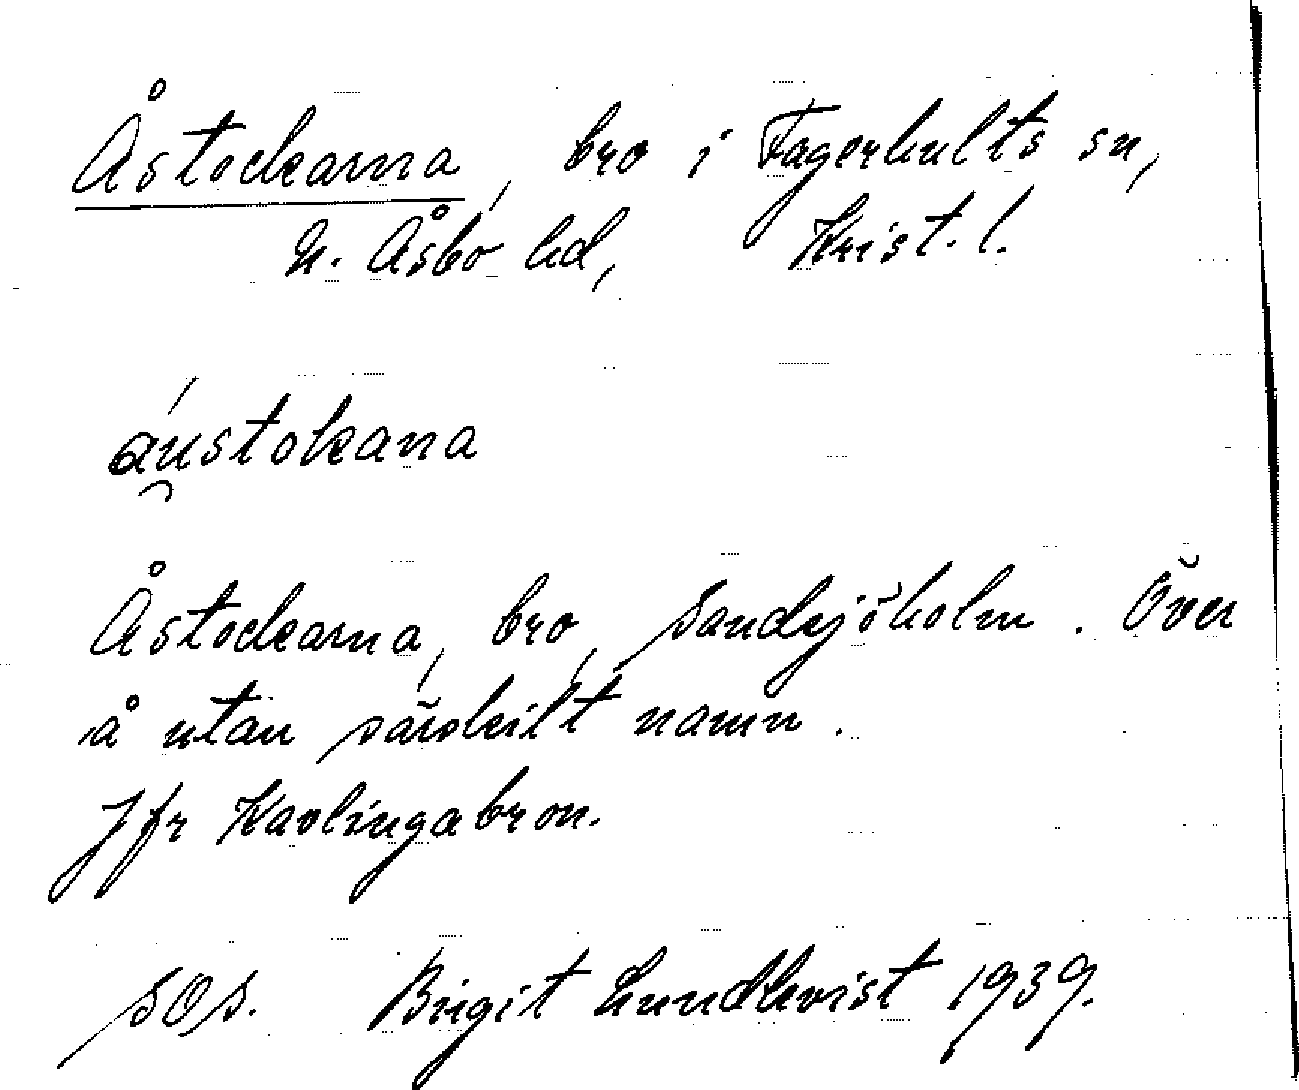 Åstockarna, bro i Fagerhults sn,
N. Åsbo hd, Krist. l.
áu̯stokana
Åstockarna, bro, Sandsjöholm. Över
å utan särskilt namn.
Jfr Kavlingabron.
SOS. Birgit Lundkvist 1939.